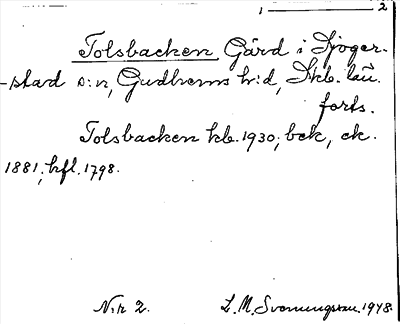 1 ——— 2
Tolsbacken, Gård i Sjöger-
-stad s:n, Gudhems h:d, Skb. län.
forts.
Tolsbacken kb. 1930; bck, ck.
1881; hfl. 1798.
N:r 2. L. M. Svenungsson. 1948.